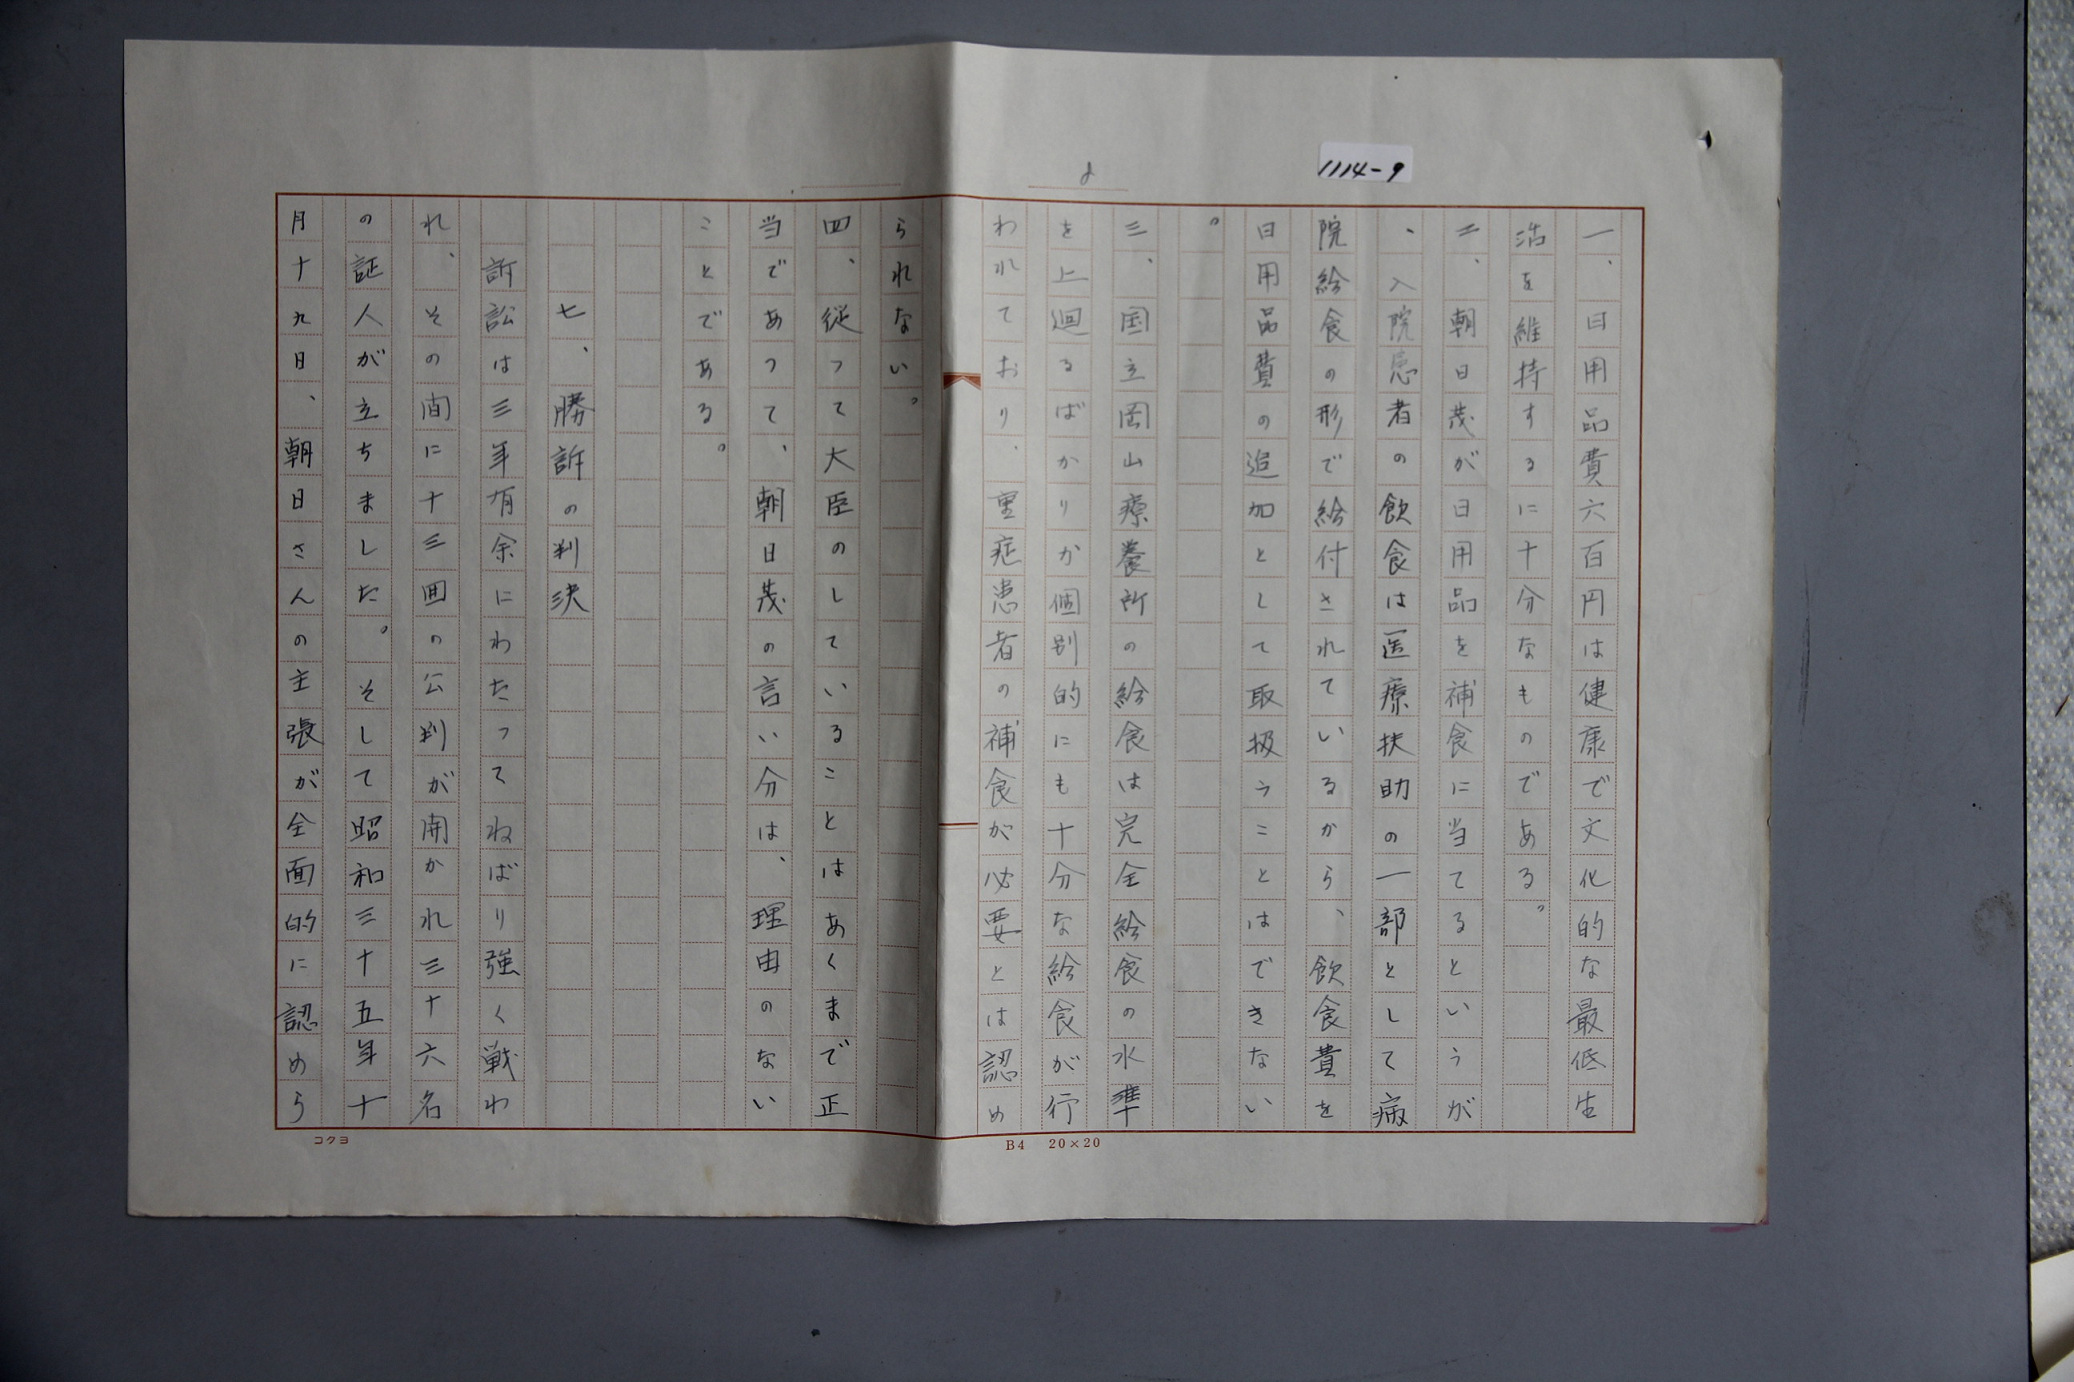 1114-9
一、日用品費六百円は健康で文化的な最低生
活を維持するに十分なものである。
二、朝日茂が日用品を補食に当てるというが
、入院患者の飲食は医療扶助の一部として病
院給食の形で給付されているから、飲食費を
日用品費の追加として取扱うことはできない
。
三、国立岡山療養所の給食は完全給食の水準
を上廻るばかりか個別的にも十分な給食が行
われており、重症患者の補食が必要とは認め
られない。
四、従って大臣のしていることはあくまで正
当であって、朝日茂の言い分は、理由のない
ことである。
七、勝訴の判決
訴訟は三年有余にわたってねばり強く戦わ
れ、その間に十三回の公判が開かれ三十六名
の証人が立ちました。そして昭和三十五年十
月十九日、朝日さんの主張が全面的に認めら
コクヨ
B4 20×20